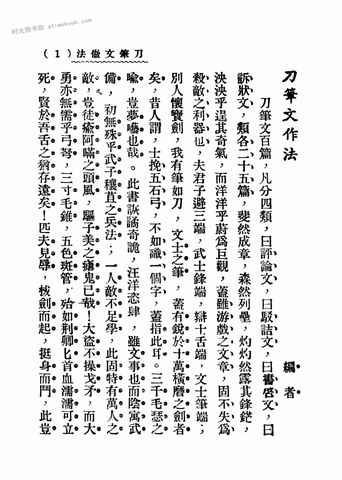 刀筆文作法(1)
刀筆文作法
編者
刀筆文百篇，凡分四類，曰評論文，曰駁詰文，曰書啓文，曰
訴狀文，類各二十五篇，斐然成章，森然列壘，灼灼然露其鋒鋩，
泱泱乎逞其奇氣，而洋洋乎蔚爲巨觀，蓋雖游戲之文章，固不失爲
殺敵之利器也，夫君子避三端，武士鋒端，辯士舌端，文士筆端；
別人懷寶劍，我有筆如刀，文士之筆，蓋有銳於十萬橫磨之劍者
矣，昔人謂，士挽五石弓，不如識一個字，蓋指此耳。三千毛瑟之
敵，豈夢囈也哉。此書詼譎奇詭，汪洋恣肆，雖文事也而陰寓武
備，初無殊乎武子穰苴之兵法；一人敵不足學，此固特有萬人之
敵，豈徒瘉阿瞞之頭風，驅子美之瘧鬼已哉！大盜不操戈矛，而大
勇亦無需乎弓弩，三寸毛錐，五色斑管，殆如荆卿匕首血濡濡可立
死，賢於吾舌之猶存遠矣！匹夫見辱，拔劍而起，挺身而鬥，此豈